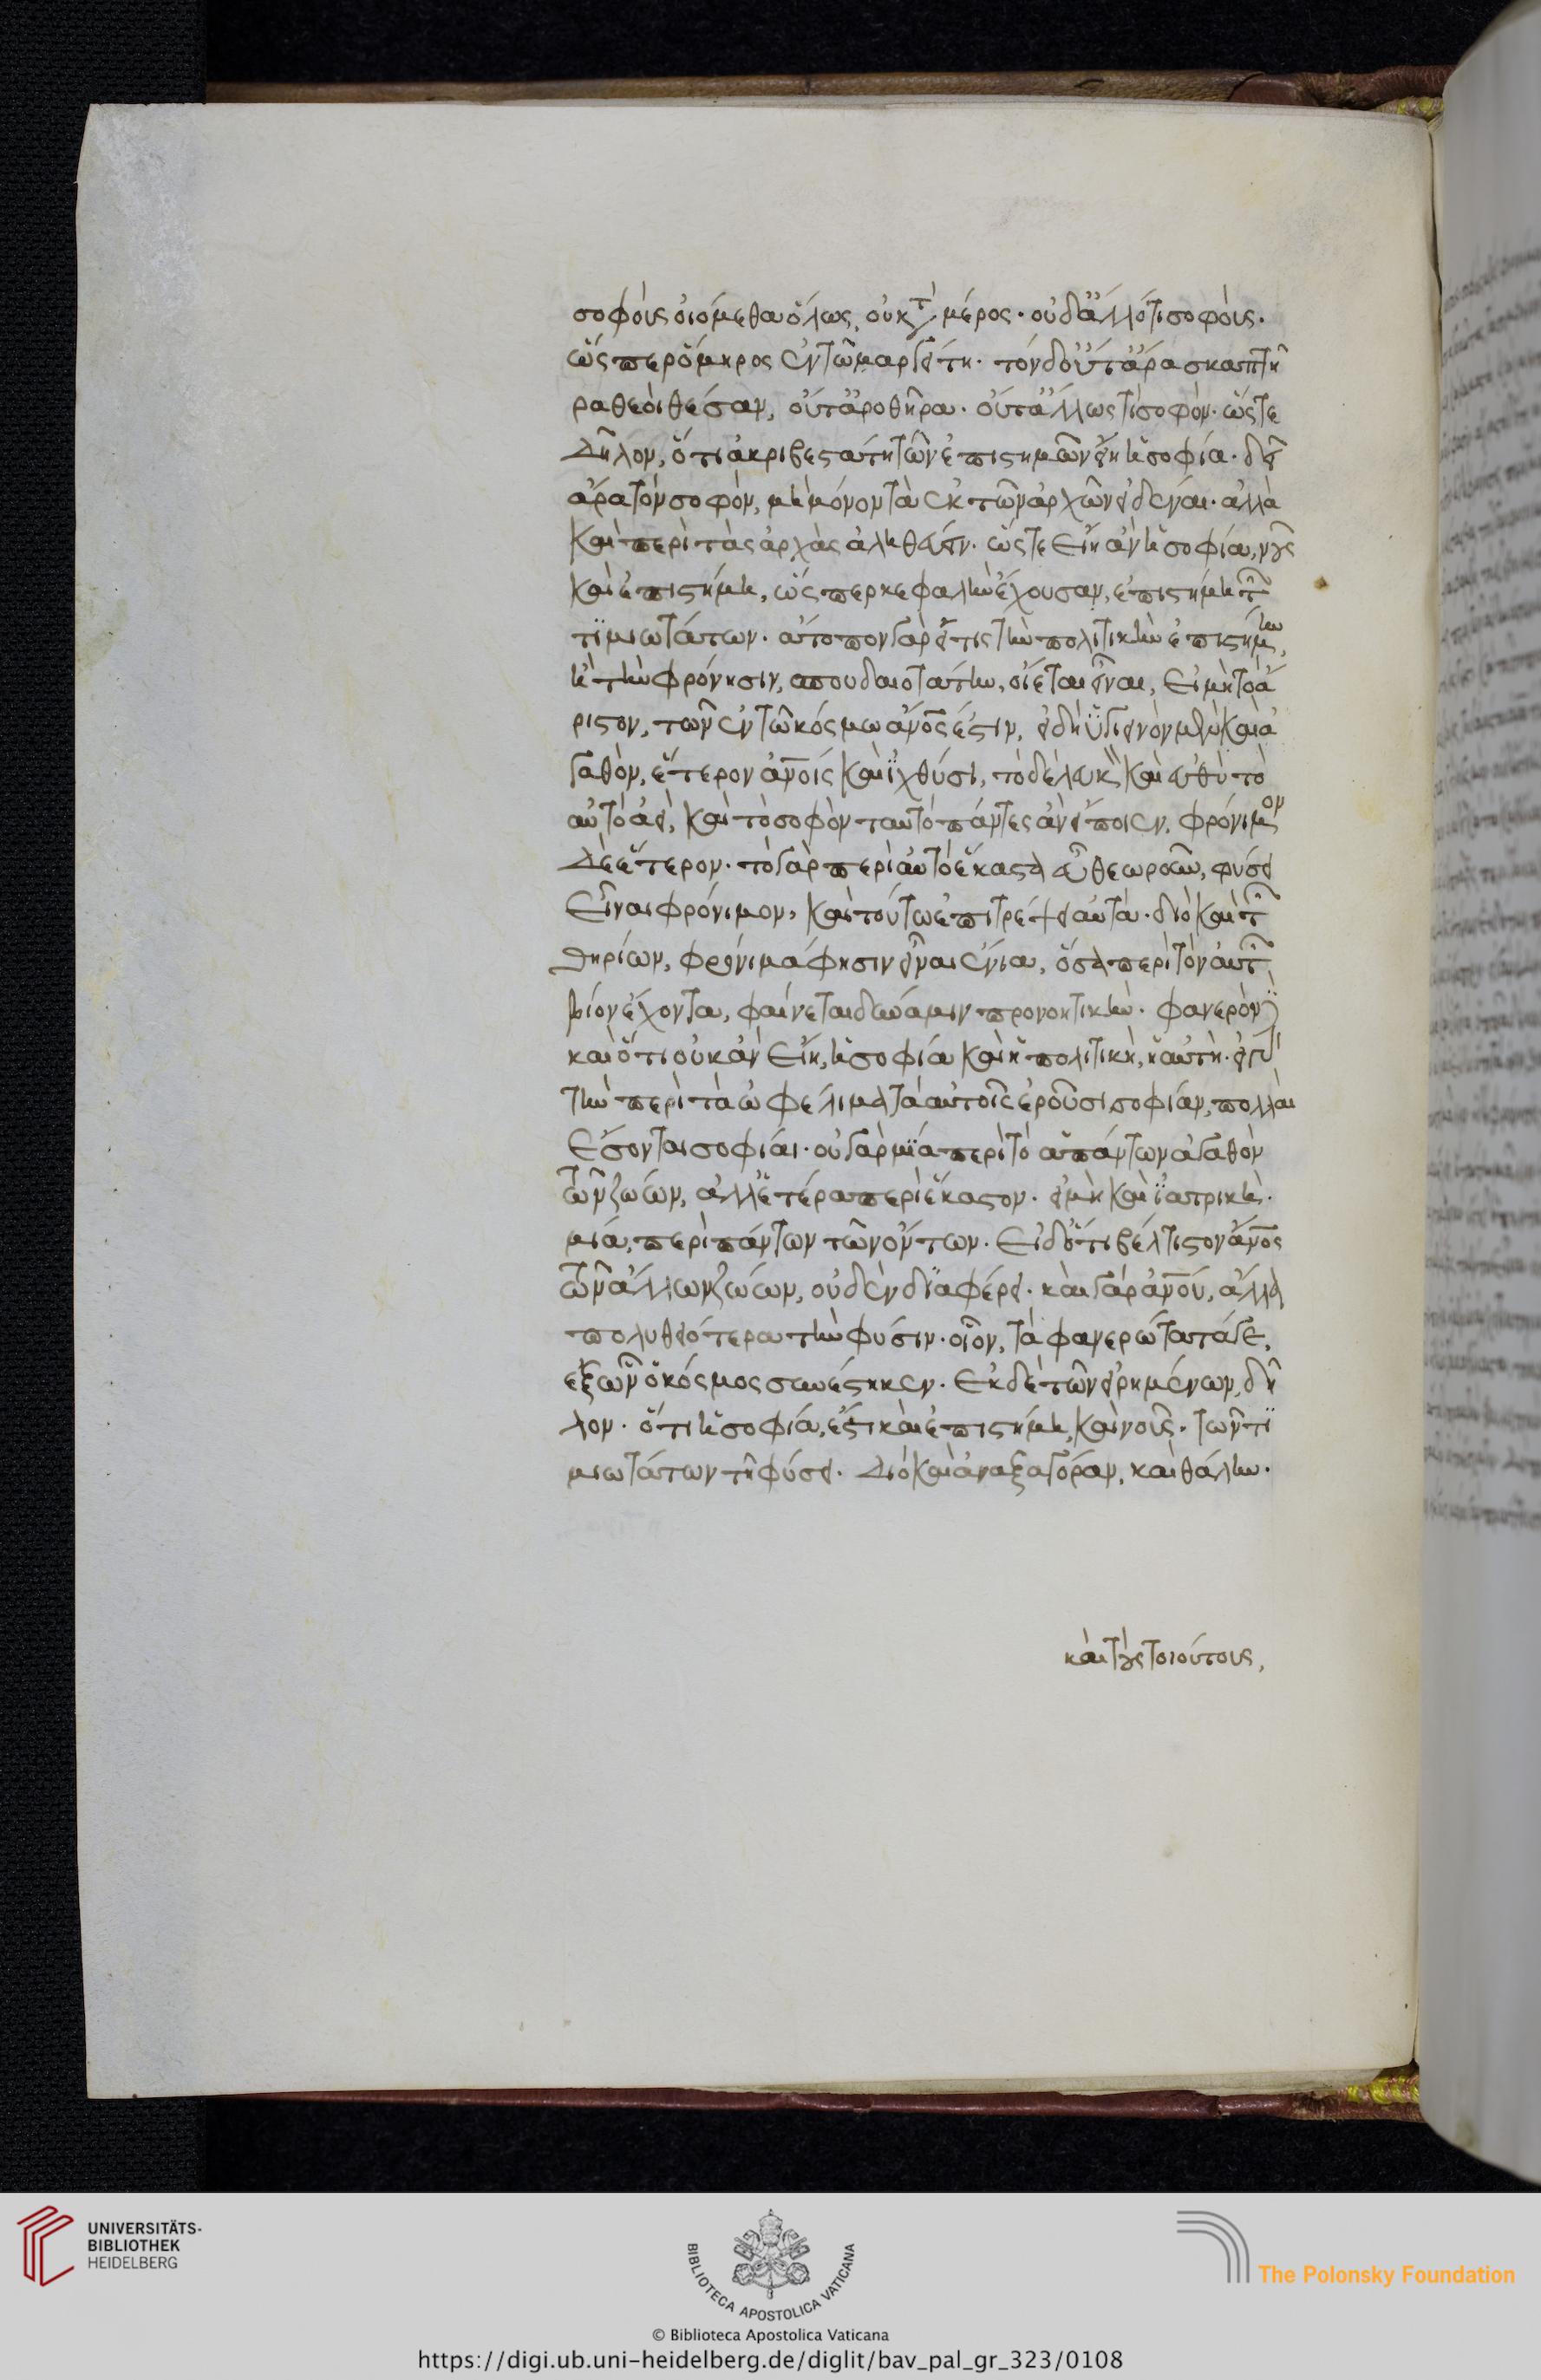 σοφοὺς οἰόμεθα ὅλως, οὐ κτ̀ μέρος· οὐδ' ἄλλό τι σοφούς·
ὥς περ ὅμηρος ἐν τῶ μαργείτη· τὸν δ' οὔτ' ἄρα σκαπτῆ
ρα θεοὶ θέσαν, οὔτ' ἀροτῆρα· οὔτ' ἄλλως τὶ σοφόν· ὥς τε
Δῆλον, ὅτι ἀκριβεστάτη τῶν ἐπιστημῶν εἴη ἡ σοφία· δεῖ
ἄρα τὸν σοφὸν, μὴ μόνον τὰ ἐκ τῶν ἀρχῶν εἰδέναι· ἀλλὰ
καὶ περὶ τὰς ἀρχὰς ἀληθεύειν· ὥς τε εἴη ἂν ἡ σοφία, νοῦς
καὶ ἐπιστήμη, ὥς περ κεφαλὴν ἔχουσαν, ἐπιστήμη τῶν
τϊμιωτάτων· ἄτοπον γὰρ εἴ τις τὴν πολιτικὴν ἐπιστήμην,
ἢ τὴν φρόνησιν, σπουδαιοτάτην, οἴεται εἶναι, εἰ μὴ τὸ ἄ
ριστον, τῶν ἐν τῶ κόσμω ἄνος ἐστιν, εἰ δὴ ὑγιεινὸν μὲν καὶ ἀ
γαθὸν, ἕτερον ἀνοις καὶ ἰχθύσι, τὸ δὲ λευκὸν καὶ εὐθὺ τὸ
αὐτὸ ἀεὶ, καὶ τὸ σοφὸν ταυτὸ πάντες ἂν εἴποιεν, φρόνιμον
Δὲ ἕτερον· τὸ γὰρ περὶ αὐτὸ ἕκαστα εὖ θεωροῦν, φύσει
Εἶναι φρόνιμον, καὶ τούτω ἐπιτρέψει αὐτά· διὸ καὶ τῶν
θηρίων, φρόνιμα φησιν εἶναι ἔνια, ὅσα περὶ τὸν αὑτῶν
βίον ἔχοντα, φαίνεται δύναμιν προνοητικήν· φανερὸν δὲ
καὶ ὅτι οὐκ ἂν εἴη, ἡ σοφία καὶ ἡ πολιτικὴ, ἡ αὐτὴ· εἰ γὰρ
τὴν περὶ τὰ ὠφέλιμα τὰ αὐτοῖς ἐροῦσι σοφίαν, πολλαὶ
Ἔσονται σοφίαι· οὐ γὰρ μΐα περὶ τὸ ἁπάντων ἀγαθὸν
τῶν ζώων, ἀλλ' ἑτέρα περὶ ἕκαστον· εἰ μὴ καὶ ἰατρικὴ·
μία, περὶ πάντων τῶν ὄντων· Εἰ δ' ὅτι βέλτιστον ἄνος
τῶν ἄλλων ζώων, οὐδὲν διαφέρει· καὶ γὰρ ἀνου, ἄλλα
πολὺ θειότερα τὴν φύσιν· οἷον, τὰ φανερώτατά γε,
ἐξ ὧν ὁ κόσμος συνέστηκεν· Ἐκ δὲ τῶν εἰρημένων, δῆ
λον· ὅτι ἡ σοφία, ἐστι καὶ ἐπιστήμη, καὶ νοῦς· τῶν τϊ
μιωτάτων τῆ φύσει· Διὸ καὶ ἀναξαγόραν, καὶ θάλην·
καὶ τοὺς τοιούτους,
UNIVERSITÄTS-
BIBLIOTHEK
HEIDELBERG
BIBLIOTECA APOSTOLICA VATICANA
The Polonsky Foundation
© Biblioteca Apostolica Vaticana
https://digi.ub.uni-heidelberg.de/diglit/bav_pal_gr_323/0108